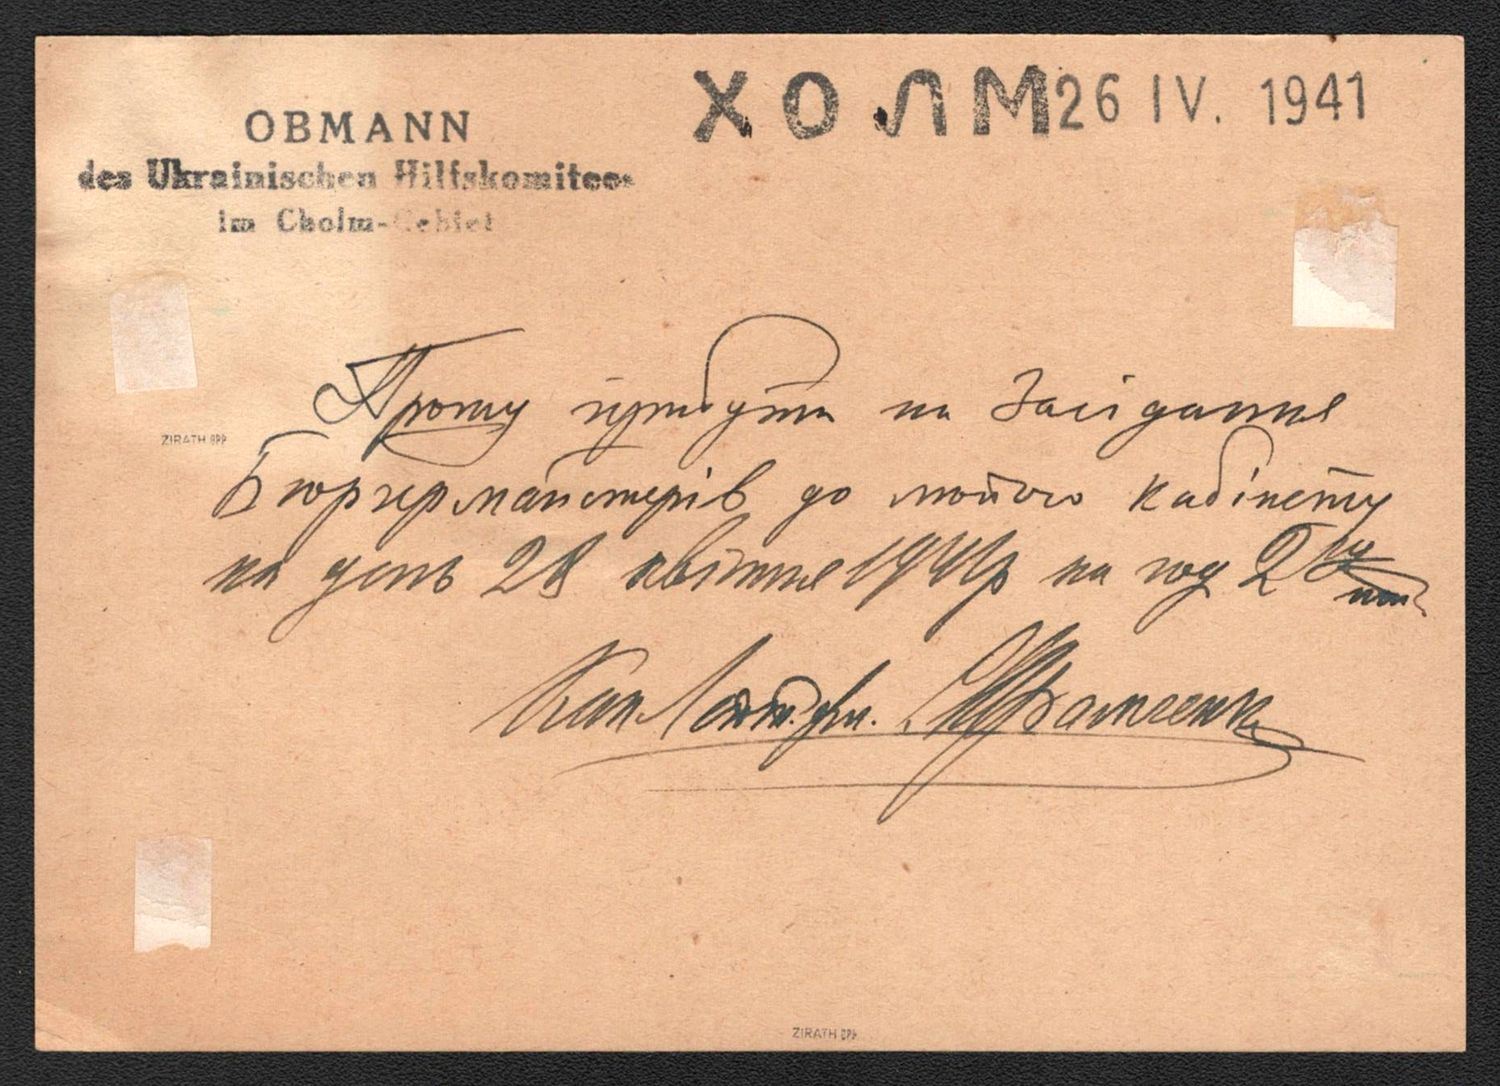 OBMANN
des Ukrainischen Hilfskomitees
im Cholm-Gebiet
ХОЛМ 26 IV. 1941
Прошу прибути на Засідання
ZIRATH BPP
Бюргермайстерів до мойого кабінету
на день 28 квітня 1941р на год 2
ZIRATH BPP